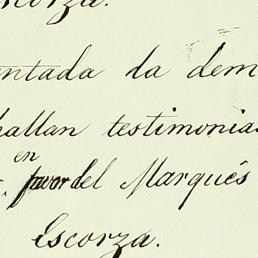 scorza.
entada la dem
hallan testimonia
en
favor del Marqués
Escorza.